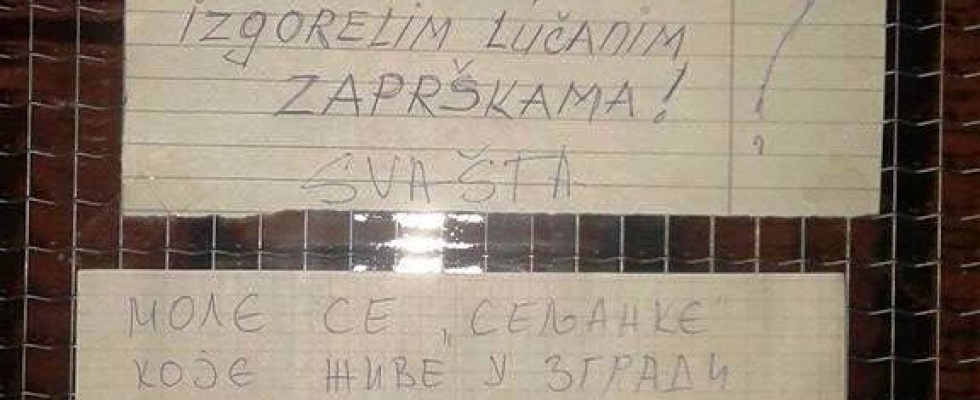 IZGORELIM LUČANIM
ZAPRŠKAMA!
SVAŠTA
?
МОЛЕ СЕ „СЕЉАНКЕ"
КОЈЕ ЖИВЕ У ЗГРАДИ